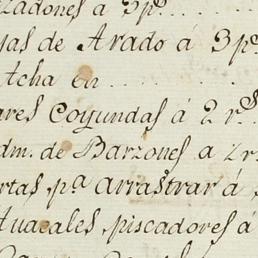 zadones á 3ps....
jas de Arado á 3ps
Atcha en ....
ares Coyundas á 2 rs
dm. de Barzones a 2 r
rtas pa arrastrar á
Auacales piscadores á